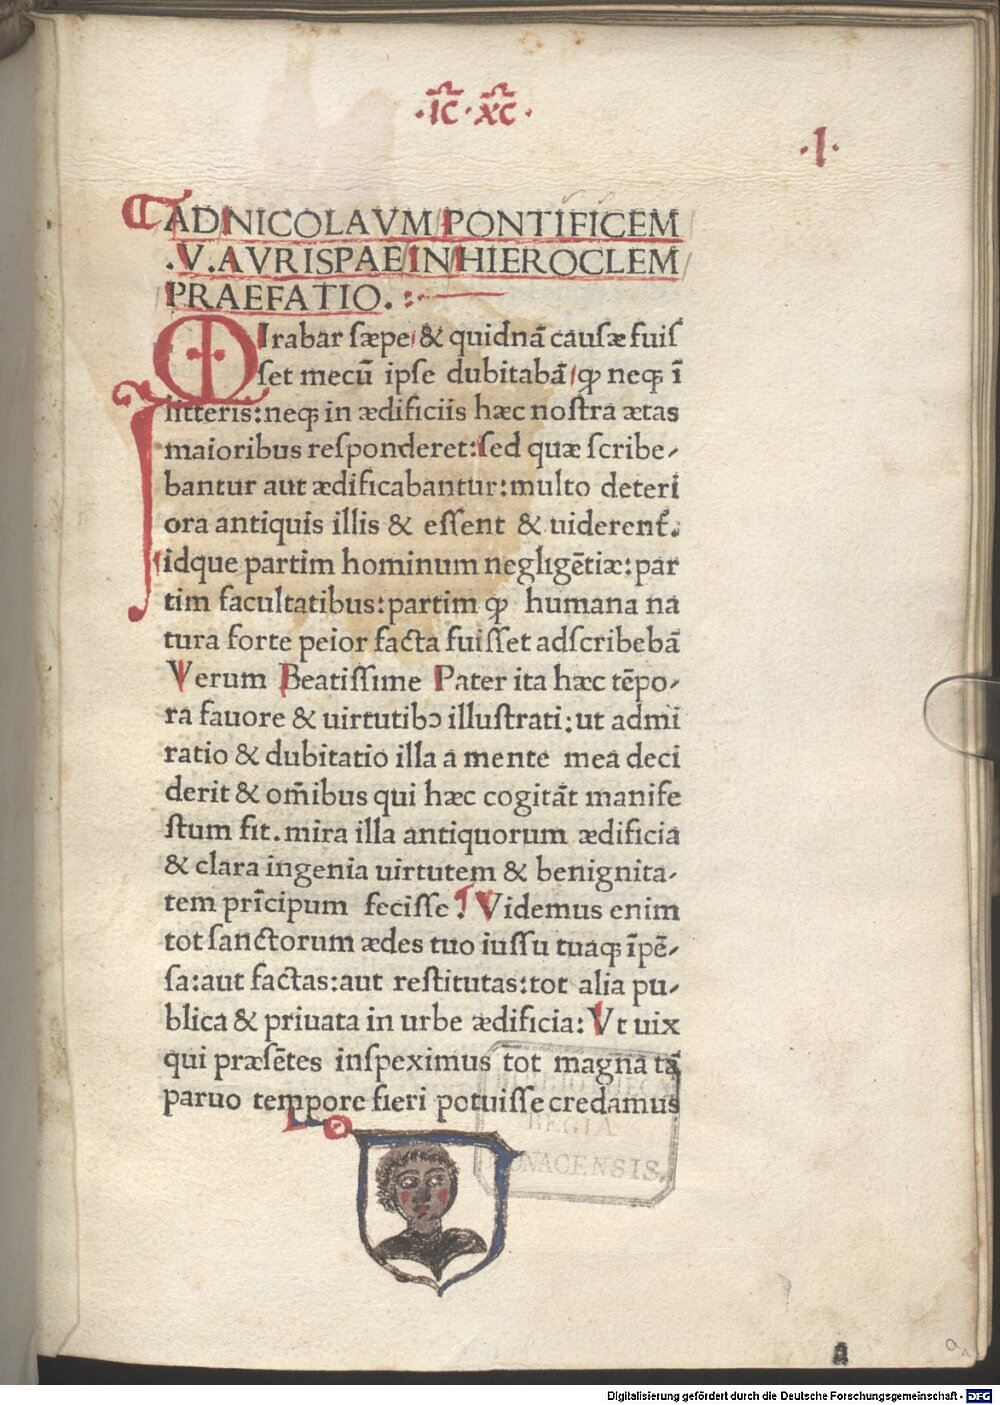 ·IC̅·XC̅·
·I·
AD NICOLAVM PONTIFICEM
.V. AVRISPAE IN HIEROCLEM
PRAEFATIO.
MIrabar sæpe & quidnā causæ fuiſ
ſet mecū ipſe dubitabā ꝙ neqꝫ ī
litteris: neqꝫ in ædificiis hæc noſtra ætas
maioribus reſponderet: ſed quæ ſcribe-
bantur aut ædificabantur: multo deteri
ora antiquis illis & eſſent & uiderent᷑.
idque partim hominum negligētiæ: par
tim facultatibus: partim ꝙ humana na
tura forte peior facta fuiſſet adſcribebā
Verum Beatiſſime Pater ita hæc tēpo-
ra fauore & uirtutibꝯ illuſtrati: ut admi
ratio & dubitatio illa a mente mea deci
derit & om̄ibus qui hæc cogitāt manife
ſtum fit. mira illa antiquorum ædificia
& clara ingenia uirtutem & benignita-
tem prīcipum feciſſe. Videmus enim
tot ſanctorum ædes tuo iuſſu tuaqꝫ īpē-
ſa: aut factas: aut reſtitutas: tot alia pu-
blica & priuata in urbe ædificia: Vt uix
qui præſētes inſpeximus tot magna tā
paruo tempore fieri potuiſſe credamus
BIBLIOTHECA
REGIA
MONACENSIS.
a
Digitalisierung gefördert durch die Deutsche Forschungsgemeinschaft - DFG